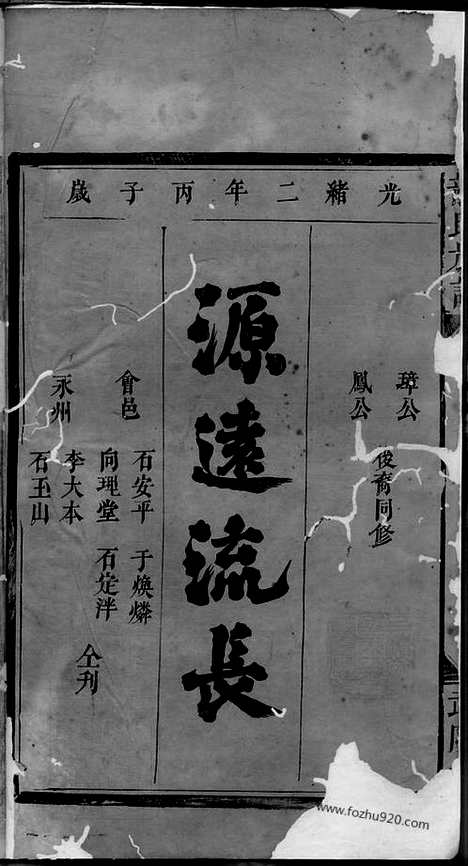 光緒二年丙子歲
璋公
鳳公
後裔同修
源遠流長
會邑
石安平 于煥燐
向理堂 石定泮
永州
李大本
石玉山
仝刋
www.fozhu920.com